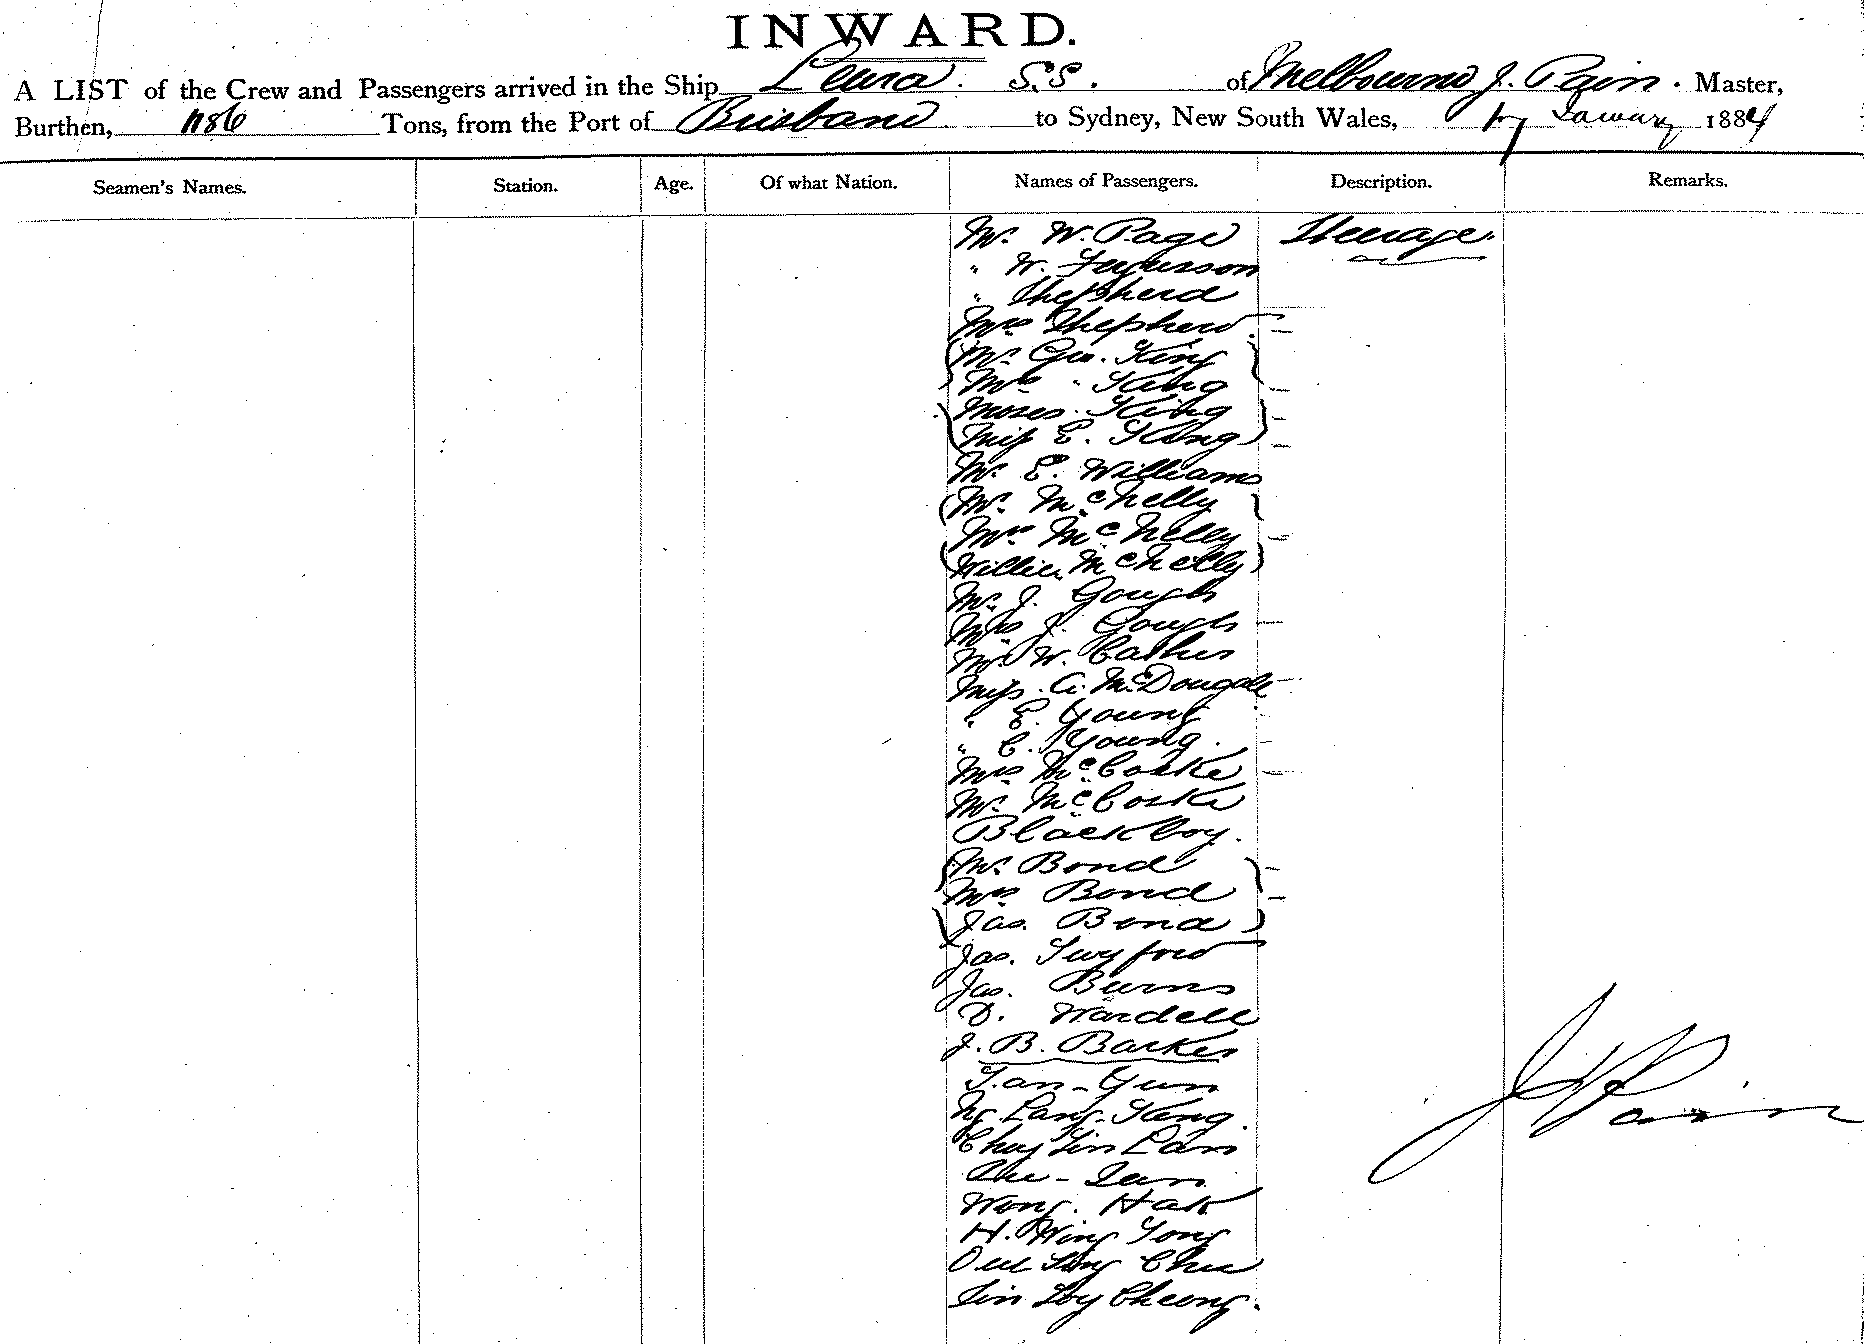 INWARD.
A LIST of the Crew and Passengers arrived in the Ship Leura S.S. of Melbourne J. Pain. Master,
Burthen, 1186 Tons, from the Port of Brisbane to Sydney, New South Wales, January 1884
Seamen's Names. Station. Age. Of what Nation. Names of Passengers. Description. Remarks.
Mr. W. Page Steerage.
" W. Fergusson
" Shepherd
Mrs Shepherd
Mr. Geo. King
Mrs " King
Moses King
Miss E. King
Mr. E. Williams
Mr. McNelly
Mrs McNelly
Willie McNelly
Mr. J. Gough
Mrs J. Gough
Mr W.
Miss A. McDougall
" E. Young
" C. Young.
Mrs McCoske
Mr. McCoske
Black boy.
Mr. Bond
Mrs Bond
Jas. Bond
Jas. Twyford
Jas. Burns
D. Wardell
J. B. Barker
Yun
Lang King.
Lin Lam

Wong. Hak
H. Wing Tong
Chu
Sin Loy Cheong.
J Pain